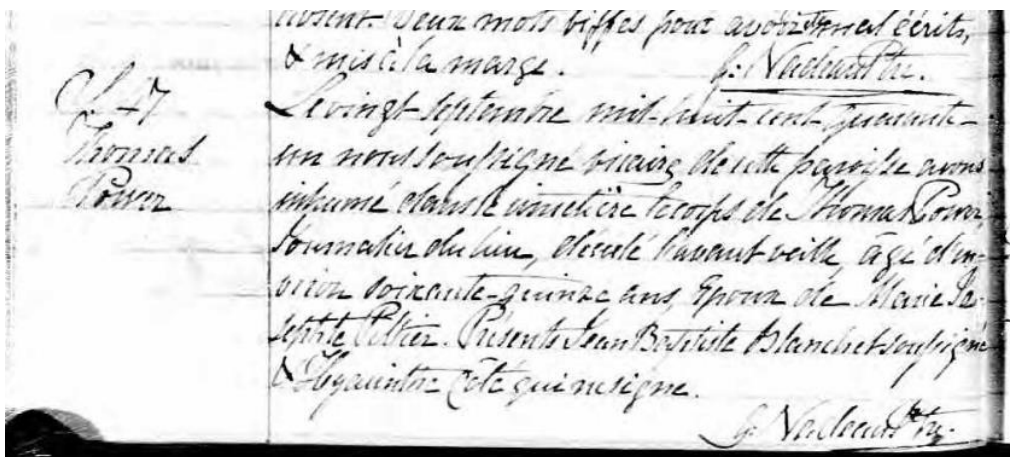 absent. Deux mots biffés pour avoir été mal écrits,
& mis à la marge. G. Nadeau Ptre.
S. 47
Thomas
Power
Le vingt septembre mil huit cent quarante-
un nous soussigné vicaire de cette paroisse avons
inhumé dans le cimetière le corps de Thomas Power,
Journalier du lieu, décédé l'avant veille, âgé d'en-
viron soixante-quinze ans, Epoux de Marie
Peltier. Présents Jean Baptiste Blanchet soussigné
& Hyacinthe Côté qui ne signe.
G. Nadeau Ptre.